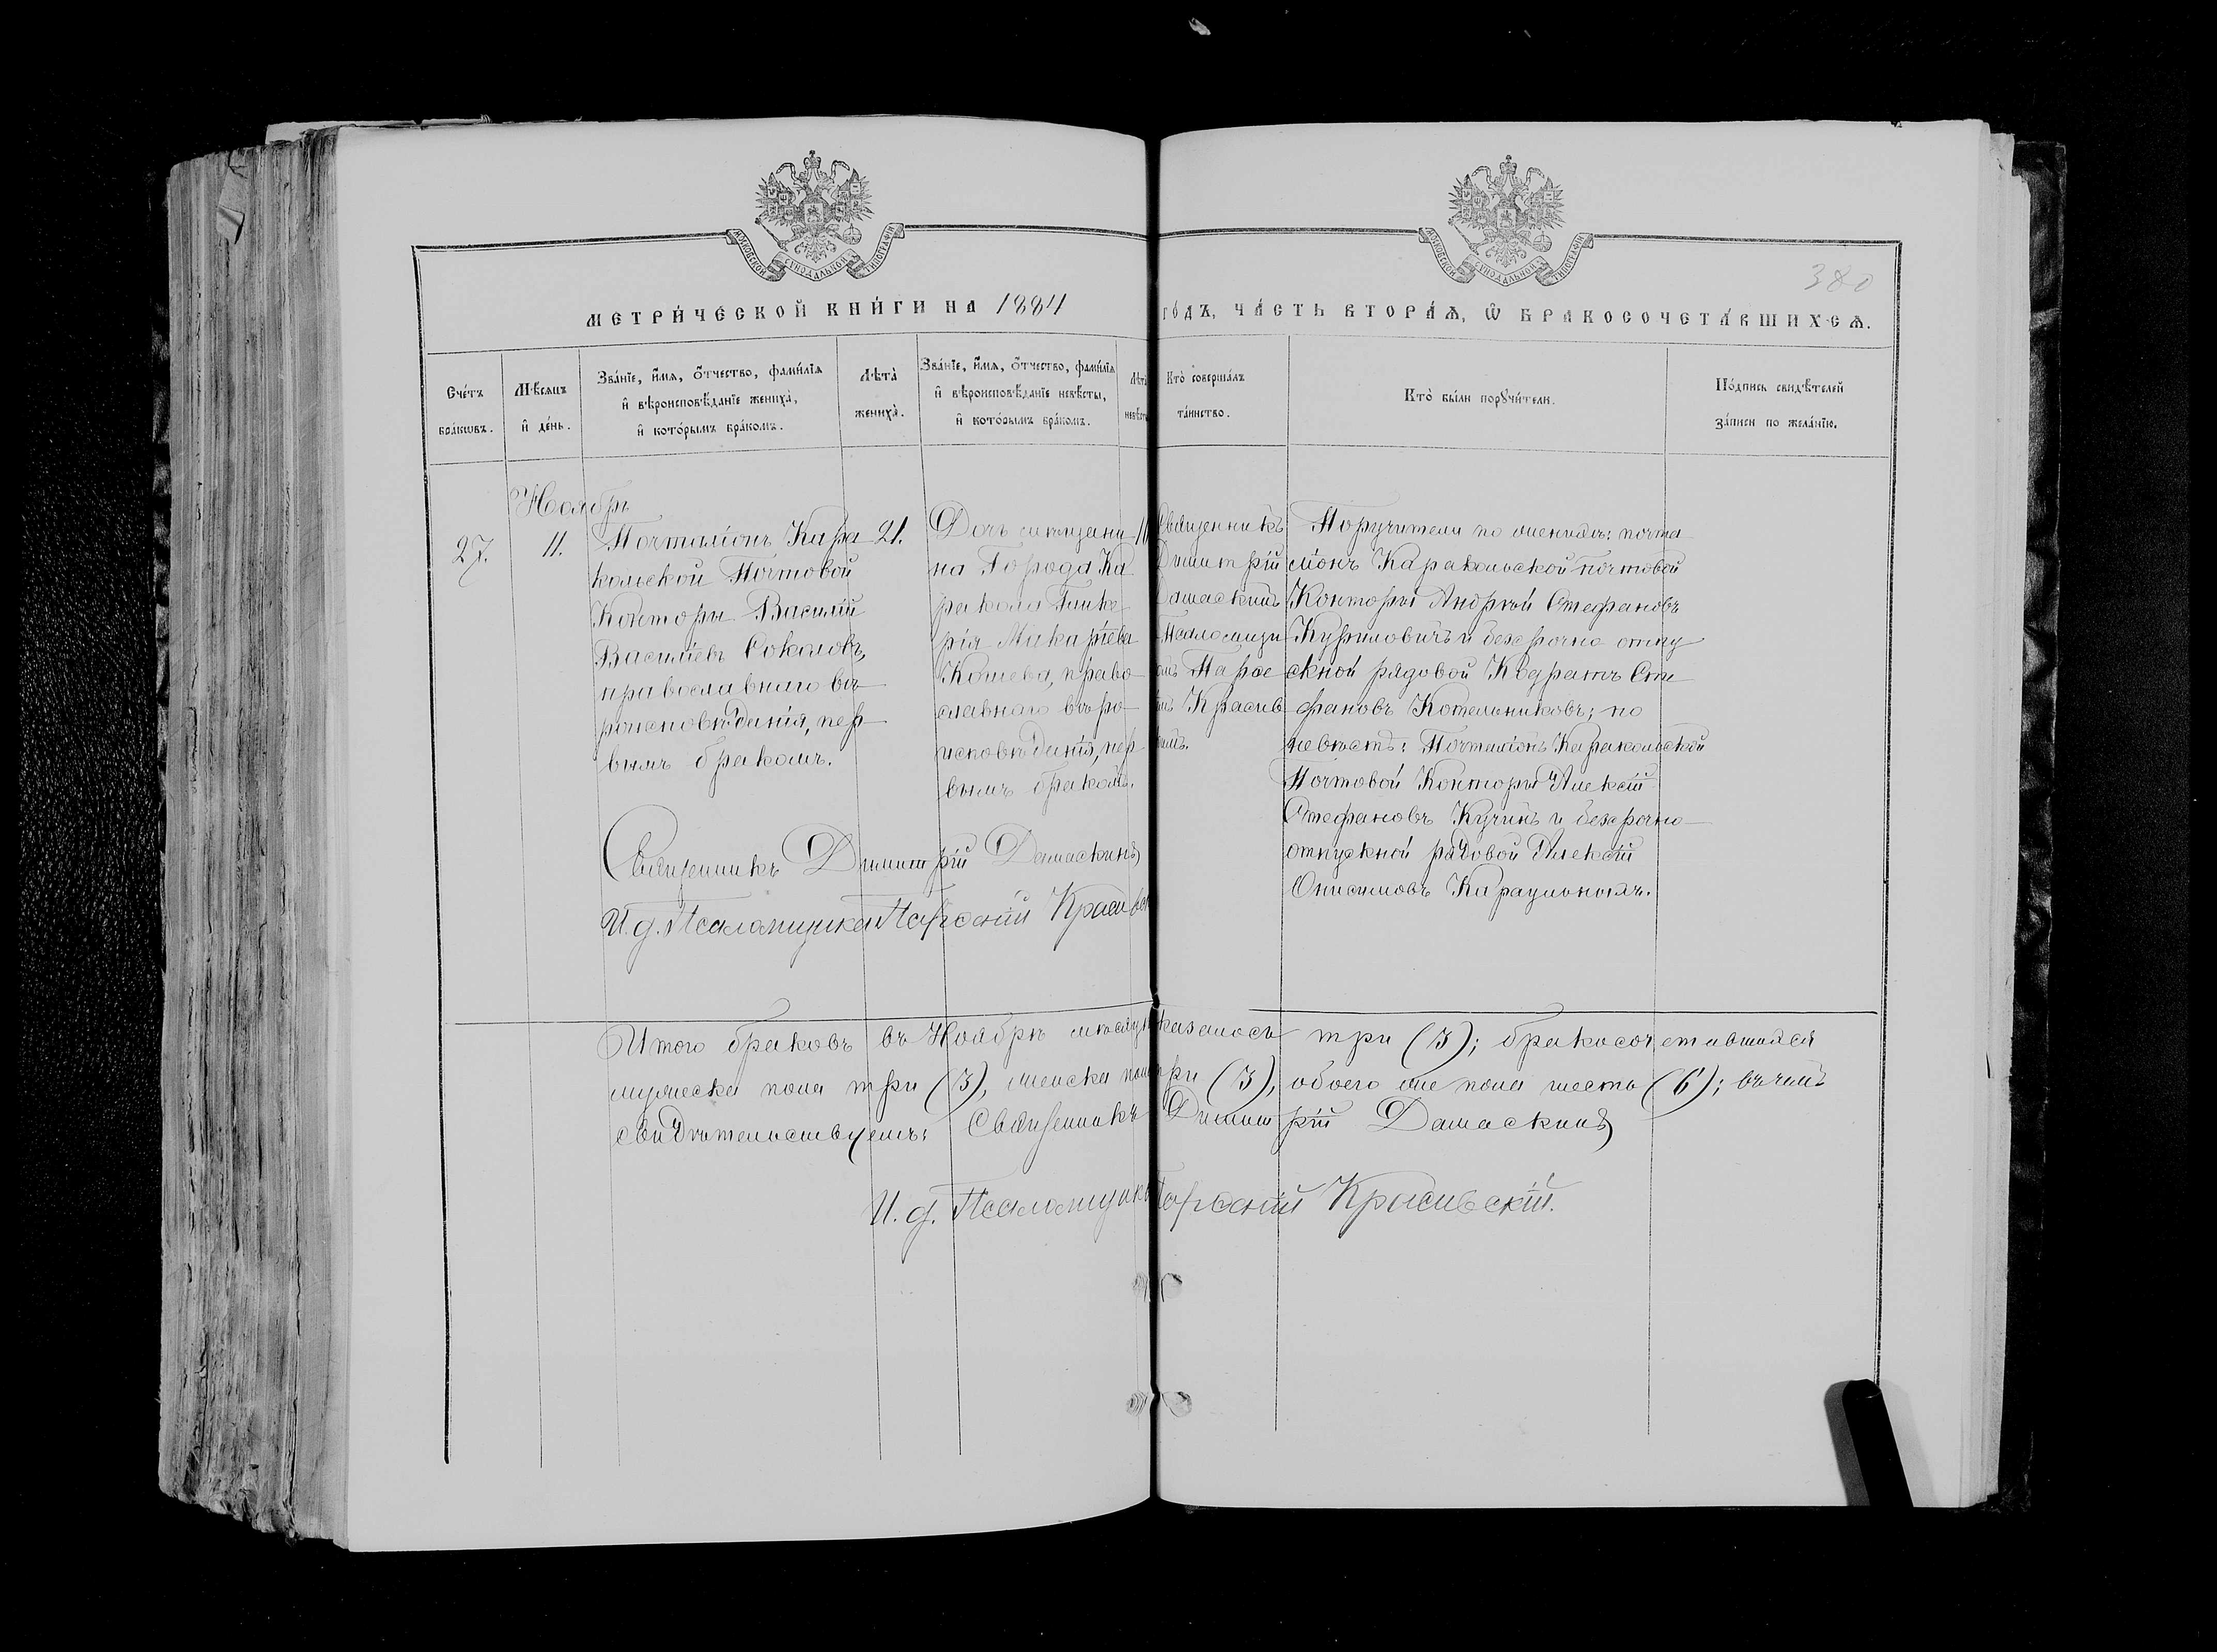 МОСКОВСКОЙ СѴНОДАЛЬНОЙ ТИПОГРАФІИ
МОСКОВСКОЙ СѴНОДАЛЬНОЙ ТИПОГРАФІИ
380
МЕТРИ́ЧЕСКОЙ КНИ́ГИ НА 1884 ГО́ДЪ, ЧА́СТЬ ВТОРА́Ѧ, Ѡ҆ БРАКОСОЧЕТА́ВШИХСѦ.
Сче́тъ
бра́кѡвъ.
Мѣ́сѧцъ
и҆ де́нь.
Зва́нїе, и҆́мѧ, ѻ҆́тчество, фами́лїѧ
и҆ вѣроисповѣ́данїе жениха̀,
и҆ кото́рымъ бра́комъ.
Лѣта̀
жениха̀.
Зва́нїе, и҆́мѧ, ѻ҆́тчество, фами́лїѧ
и҆ вѣроисповѣ́данїе невѣ́сты,
и҆ кото́рымъ бра́комъ.
Лѣта
невѣст
Кто̀ соверша́лъ
та́инство.
Кто̀ бы́ли порꙋчи́тели.
По́дпись свидѣ́телей
за́писи по жела́нїю.
Ноябрь
27.
11.
Почталіонъ Кара
кольской Почтовой
Конторы Василій
Василіевъ Соколовъ,
православнаго вѣ
роисповѣданія, пер
вымъ бракомъ.
21.
Дочь мѣщани
на Города Ка
ракола Глике
рія Макаріева
Кошева, право
славнаго вѣро
исповѣданія, пер
вымъ бракомъ.
Священникъ
Димитрій
Дамаскинъ
Псаломщи
Парѳе
Красив
Поручители по женихѣ: почта
ліонъ Каракольской почтовой
Конторы Андрей Стефановъ
Куриловичъ и безсрочно отпу
скной рядовой Кодратъ Сте
фановъ Котельниковъ; по
невѣстѣ: Почталіонъ Каракольской
Почтовой Конторы Алексій
Стефановъ Кучинъ и безсрочно
отпускной рядовой Алексій
Онисимовъ Караульныхъ.
Священникъ Димитрій Дамаскинъ
И. д. Псаломщика Парѳеній Красивск
Итого браковъ въ Ноябрѣ мѣсяцѣ казалось три (3); бракосочетавшихся
мужеска пола три (3), женска пола три (3), обоего же пола шесть (6); въ чемъ
свидѣтельствуемъ: Священникъ Димитрій Дамаскинъ
И. д. Псаломщика Парѳеній Красивскій.